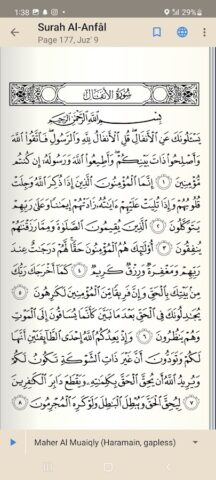 1:38
29%
Surah Al-Anfâl
Page 177, Juz' 9
سُورَةُ الأَنفَالِ
بِسْمِ اللَّهِ الرَّحْمَٰنِ الرَّحِيمِ
يَسْـَٔلُونَكَ عَنِ ٱلْأَنفَالِ ۖ قُلِ ٱلْأَنفَالُ لِلَّهِ وَٱلرَّسُولِ ۖ فَٱتَّقُوا۟ ٱللَّهَ
وَأَصْلِحُوا۟ ذَاتَ بَيْنِكُمْ ۖ وَأَطِيعُوا۟ ٱللَّهَ وَرَسُولَهُۥٓ إِن كُنتُم
مُّؤْمِنِينَ ١ إِنَّمَا ٱلْمُؤْمِنُونَ ٱلَّذِينَ إِذَا ذُكِرَ ٱللَّهُ وَجِلَتْ
قُلُوبُهُمْ وَإِذَا تُلِيَتْ عَلَيْهِمْ ءَايَٰتُهُۥ زَادَتْهُمْ إِيمَٰنًا وَعَلَىٰ رَبِّهِمْ
يَتَوَكَّلُونَ ٢ ٱلَّذِينَ يُقِيمُونَ ٱلصَّلَوٰةَ وَمِمَّا رَزَقْنَٰهُمْ
يُنفِقُونَ ٣ أُو۟لَٰٓئِكَ هُمُ ٱلْمُؤْمِنُونَ حَقًّا ۚ لَّهُمْ دَرَجَٰتٌ عِندَ
رَبِّهِمْ وَمَغْفِرَةٌ وَرِزْقٌ كَرِيمٌ ٤ كَمَآ أَخْرَجَكَ رَبُّكَ
مِنۢ بَيْتِكَ بِٱلْحَقِّ وَإِنَّ فَرِيقًا مِّنَ ٱلْمُؤْمِنِينَ لَكَٰرِهُونَ ٥
يُجَٰدِلُونَكَ فِى ٱلْحَقِّ بَعْدَ مَا تَبَيَّنَ كَأَنَّمَا يُسَاقُونَ إِلَى ٱلْمَوْتِ
وَهُمْ يَنظُرُونَ ٦ وَإِذْ يَعِدُكُمُ ٱللَّهُ إِحْدَى ٱلطَّآئِفَتَيْنِ أَنَّهَا
لَكُمْ وَتَوَدُّونَ أَنَّ غَيْرَ ذَاتِ ٱلشَّوْكَةِ تَكُونُ لَكُمْ
وَيُرِيدُ ٱللَّهُ أَن يُحِقَّ ٱلْحَقَّ بِكَلِمَٰتِهِۦ وَيَقْطَعَ دَابِرَ ٱلْكَٰفِرِينَ
٧ لِيُحِقَّ ٱلْحَقَّ وَيُبْطِلَ ٱلْبَٰطِلَ وَلَوْ كَرِهَ ٱلْمُجْرِمُونَ ٨
Maher Al Muaiqly (Haramain, gapless)